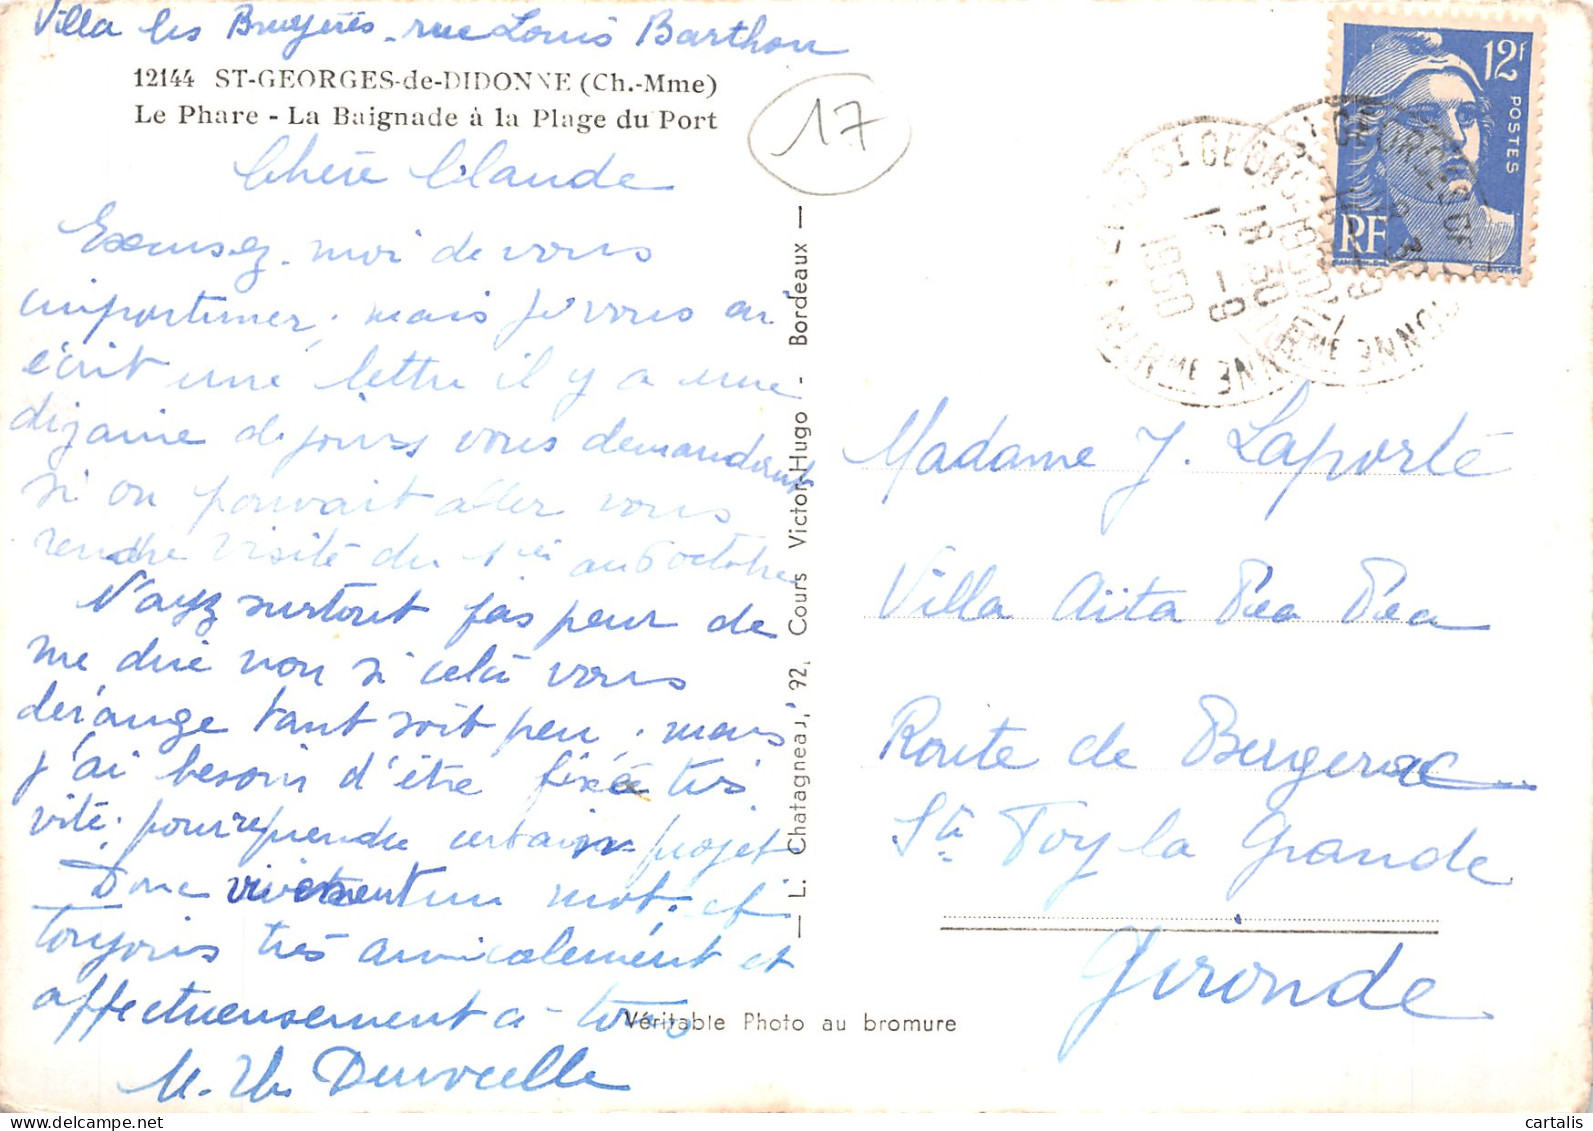 Villa les Bruyères - rue Louis Barthou
12144 ST-GEORGES-de-DIDONNE (Ch.-Mme)
Le Phare - La Baignade à la Plage du Port
17
12F
POSTES
RF
18 30
1950
Chère Claude
Excusez-moi de vous
importuner, mais je vous ai
écrit une lettre il y a une
dizaine de jours vous demandant
si on pouvait aller vous
rendre visite du 1er au 6 octobre
N'ayez surtout pas peur de
me dire non si celà vous
dérange tant soit peu. mais
j'ai besoin d'être fixée très
vite. pour reprendre certain projet
Donc vivement un mot. et
toujours très amicalement et
affectueusement à tous
— L. Chatagneau, 92, Cours Victor-Hugo - Bordeaux —
Madame J. Laporte
Villa Aïta Pea Pea
Route de Bergerac
Ste Foy la Grande
Gironde
Véritable Photo au bromure